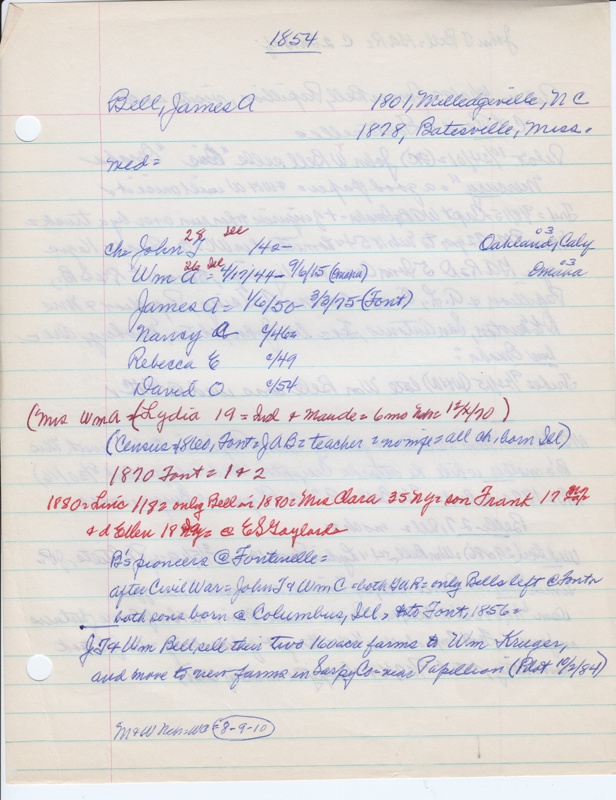 1854
Bell, James A 1801, Milledgeville, NC
1878, Batesville, Miss.
med=
ch= John T 28 Dec /42- Oakland, Caly 03
Wm A 26 Dec = 4/17/44- 9/6/15 (Omaha) Omaha 03
James A = 1/6/50- 3/3/75 (Font)
Nancy c/46=
Rebecca E c/49
David O c/54
(Mrs Wm A = Lydia 19 = Ind & Maude = 6 mo Neb= 1870)
(Census 1860, Font = JAB = teacher = no wife = all ch, born Ill)
1870 Font = 1 & 2
1880 = Livic 118 = only Bell in 1880 = Mrs Clara 35 NY = son Frank 17
& d Ellen 18 = @ ES Gaylords
B's pioneers @ Fontenelle =
after Civil War = John T & Wm C = both GAR = only Bells left @ Font
both sons born @ Columbus, Ill, to Font, 1856=
JT & Wm Bell sell their two 160 acre farms to Wm Kruger,
and move to new farms in Sarpy Co near Papillion (Pilot 10/2/84)
8-9-10